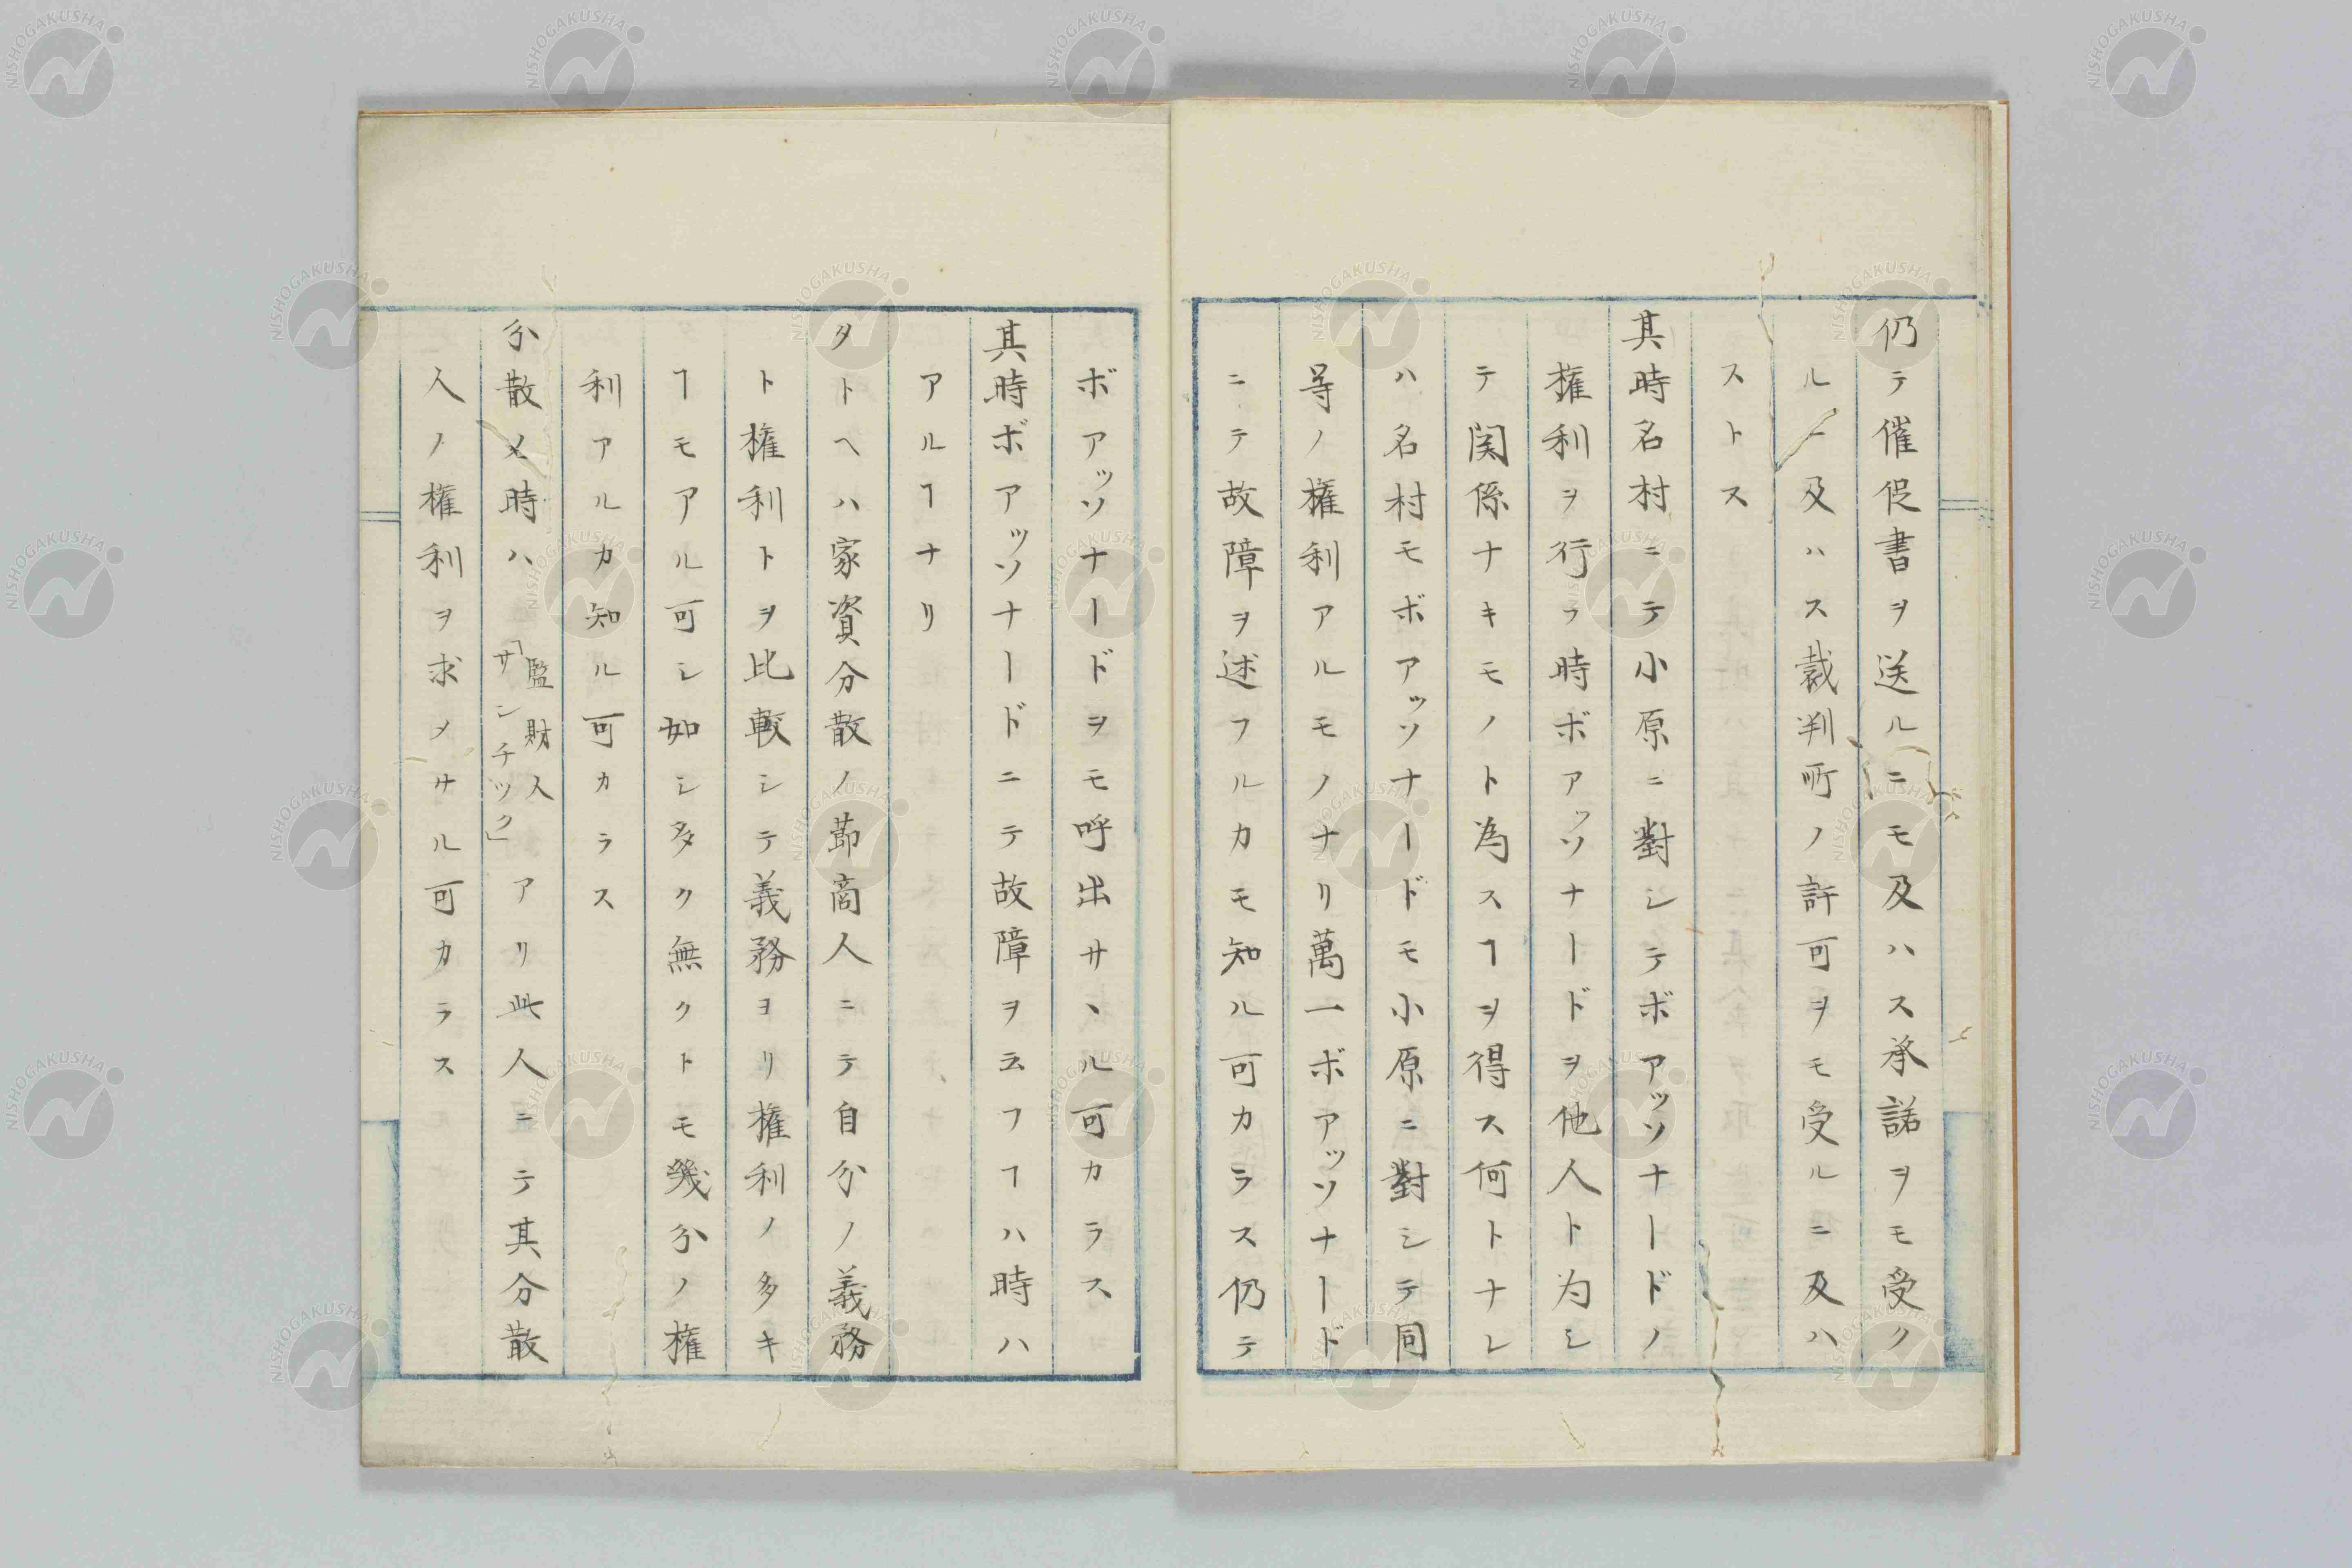 仍テ催促書ヲ送ルニモ及ハス承諾ヲモ受ク
ルニ及ハス裁判所ノ許可ヲモ受ルニ及ハ
ストス
其時名村ニテ小原ニ對シテボアッソナードノ
権利ヲ行フ時ボアッソナードヲ他人ト为シ
テ関係ナキモノト為スヿヲ得ス何トナレ
ハ名村モボアッソナードモ小原ニ對シテ同
等ノ権利アルモノナリ萬一ボアッソナード
ニテ故障ヲ述フルカモ知ル可カラス仍テ
ボアッソナードヲモ呼出サヽル可カラス
其時ボアッソナードニテ故障ヲ云フヿハ時ハ
アルヿナリ
タトヘハ家資分散ノ節商人ニテ自分ノ義務
ト権利トヲ比較シテ義務ヨリ権利ノ多キ
ヿモアル可シ如シ多ク無クトモ幾分ノ権
利アルカ知ル可カラス
分散メ時ハ監財人「サンチック」アリ此人ニテ其分散
人ノ権利ヲ求メサル可カラス
NISHOGAKUSHA